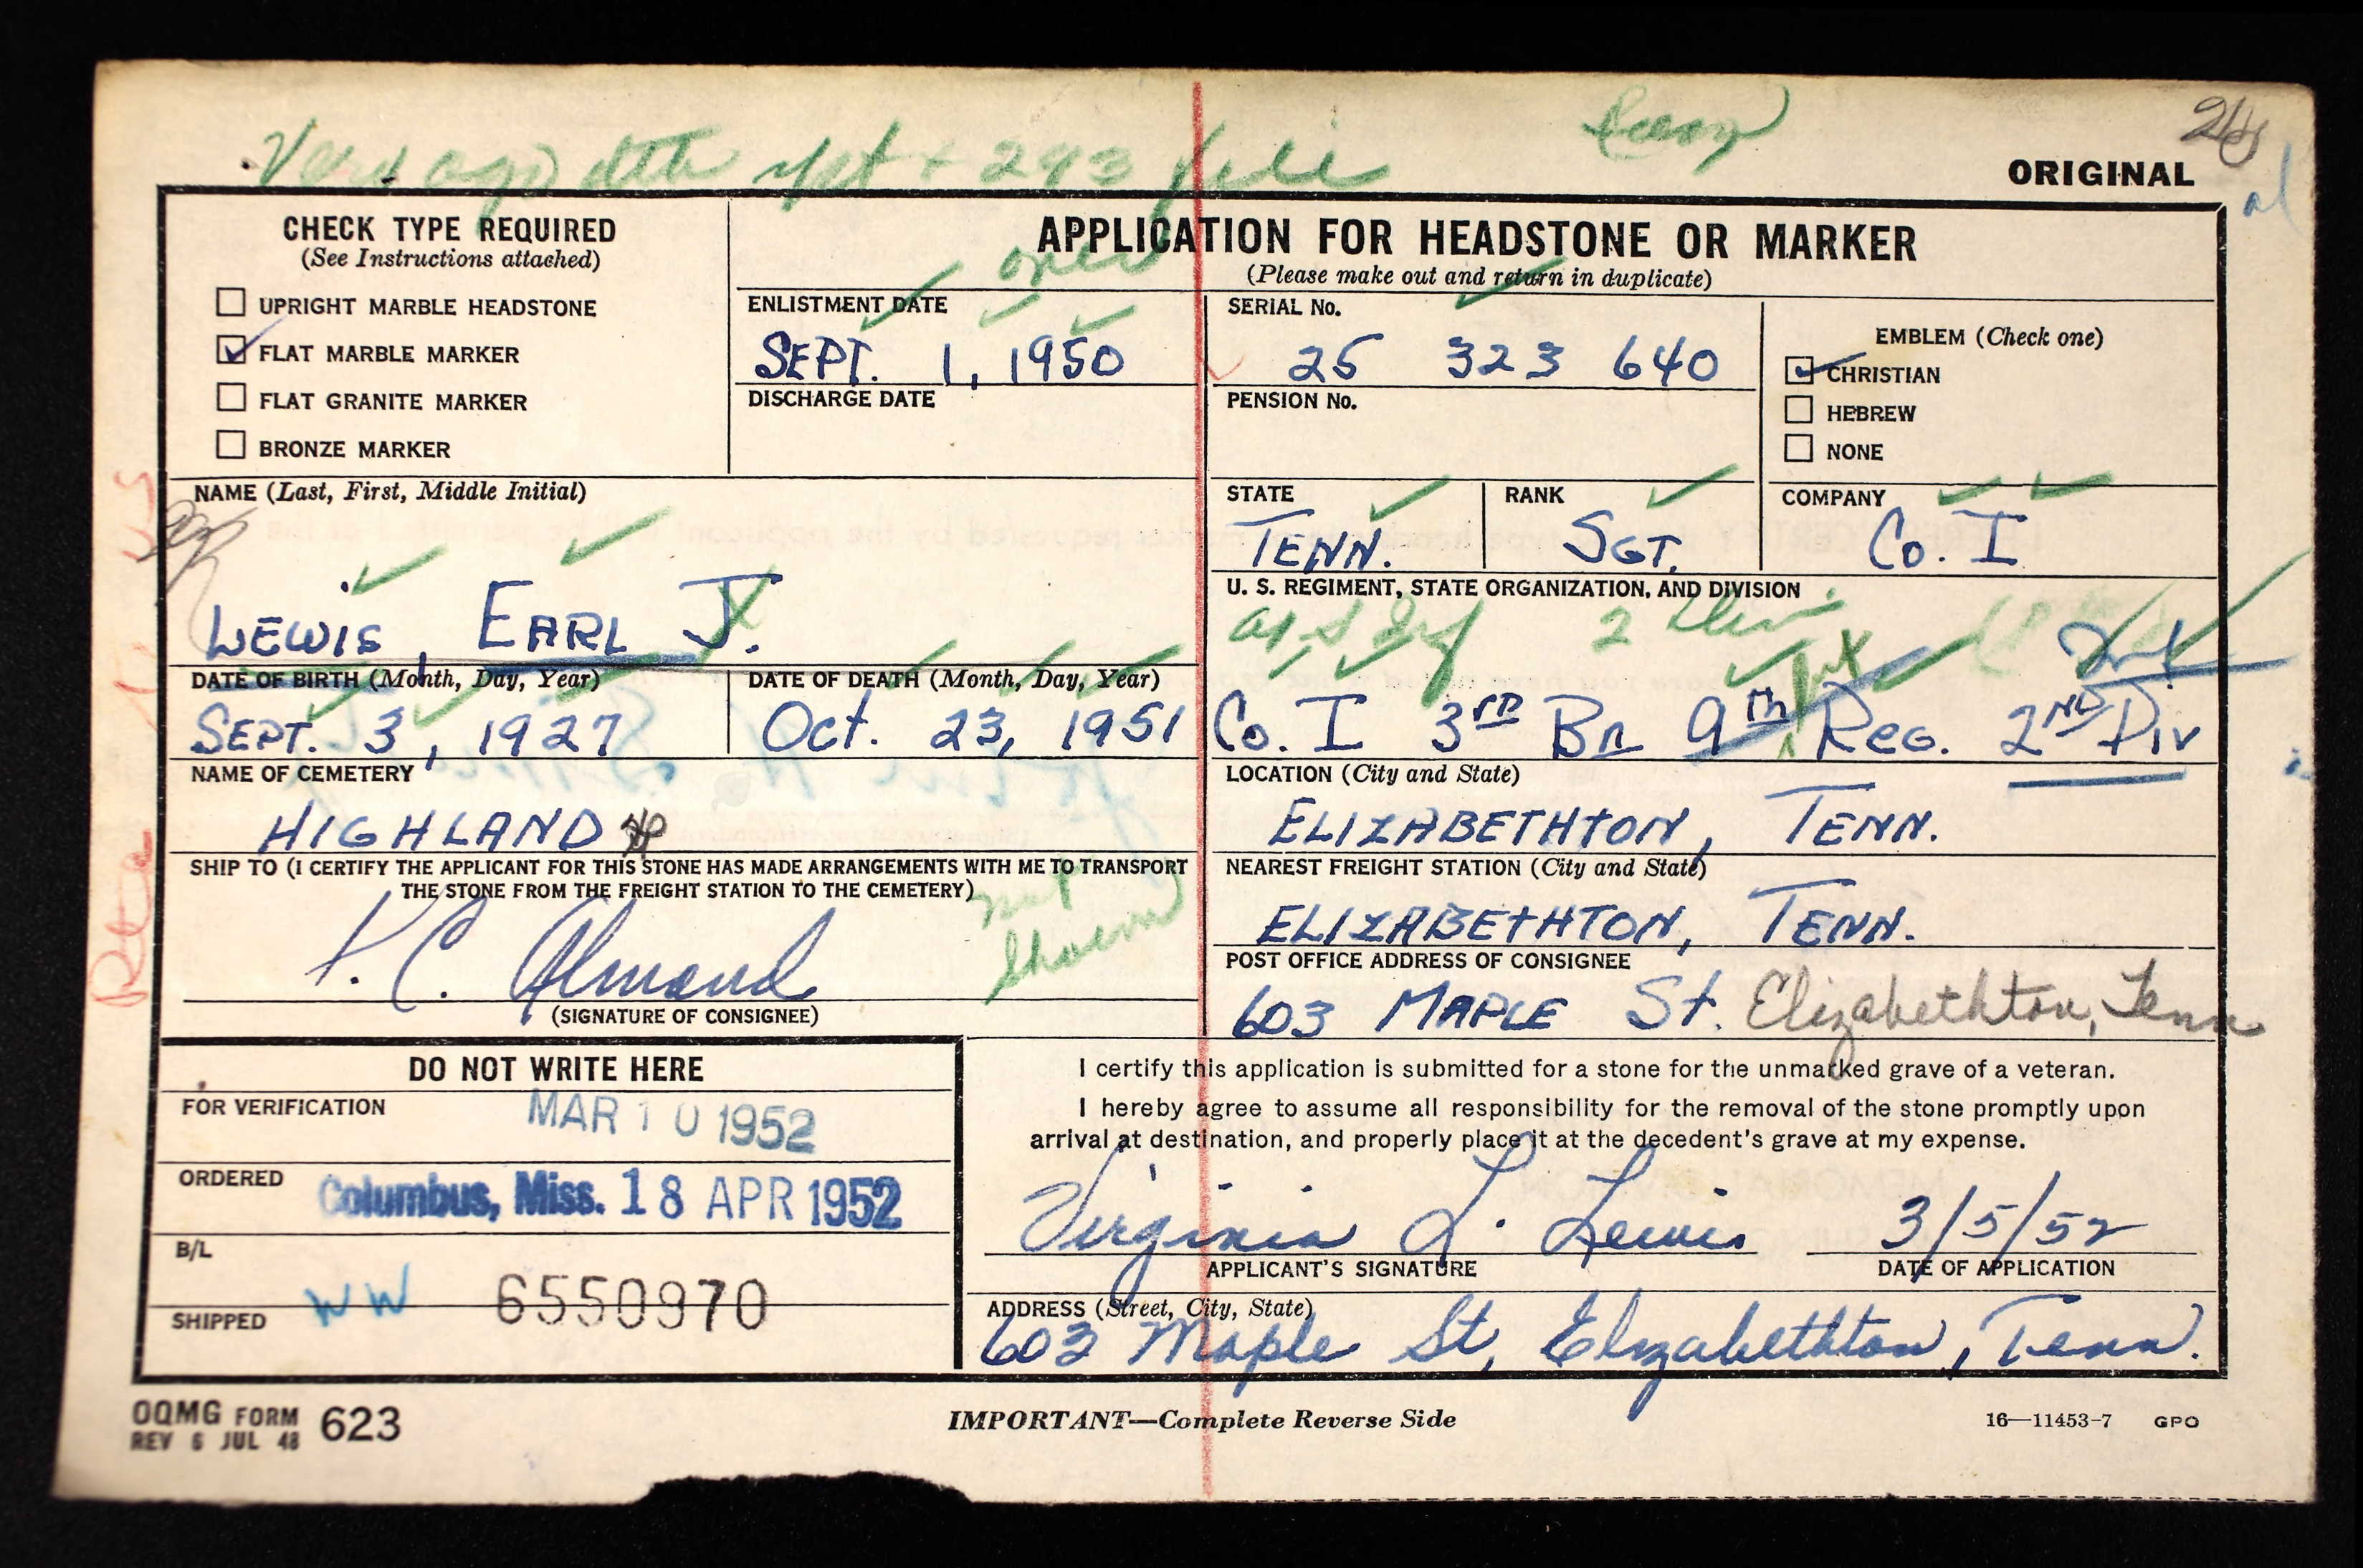 ORIGINAL
CHECK TYPE REQUIRED
(See Instructions attached)
UPRIGHT MARBLE HEADSTONE
FLAT MARBLE MARKER
FLAT GRANITE MARKER
BRONZE MARKER
APPLICATION FOR HEADSTONE OR MARKER
(Please make out and return in duplicate)
ENLISTMENT DATE
SEPT. 1, 1950
DISCHARGE DATE
SERIAL No.
25 323 640
PENSION No.
EMBLEM (Check one)
CHRISTIAN
HEBREW
NONE
NAME (Last, First, Middle Initial)
LEWIS, EARL J.
STATE
TENN.
RANK
SGT.
COMPANY
Co. I
U. S. REGIMENT, STATE ORGANIZATION, AND DIVISION
2 Div
Inf
Co. I 3RD BN 9th Reg. 2ND Div
DATE OF BIRTH (Month, Day, Year)
SEPT. 3, 1927
DATE OF DEATH (Month, Day, Year)
Oct. 23, 1951
NAME OF CEMETERY
HIGHLAND
LOCATION (City and State)
ELIZABETHTON, TENN.
SHIP TO (I CERTIFY THE APPLICANT FOR THIS STONE HAS MADE ARRANGEMENTS WITH ME TO TRANSPORT
THE STONE FROM THE FREIGHT STATION TO THE CEMETERY)
not shown
C. Almond
(SIGNATURE OF CONSIGNEE)
NEAREST FREIGHT STATION (City and State)
ELIZABETHTON, TENN.
POST OFFICE ADDRESS OF CONSIGNEE
603 MAPLE St. Elizabethton, Tenn
DO NOT WRITE HERE
FOR VERIFICATION
MAR 10 1952
ORDERED
Columbus, Miss. 18 APR 1952
B/L
WW 6550970
SHIPPED
I certify this application is submitted for a stone for the unmarked grave of a veteran.
I hereby agree to assume all responsibility for the removal of the stone promptly upon
arrival at destination, and properly place it at the decedent's grave at my expense.
Virginia L. Lewis 3/5/52
APPLICANT'S SIGNATURE DATE OF APPLICATION
ADDRESS (Street, City, State)
603 Maple St, Elizabethton, Tenn.
OQMG FORM 623
REV 6 JUL 48
IMPORTANT—Complete Reverse Side
16—11453-7 GPO